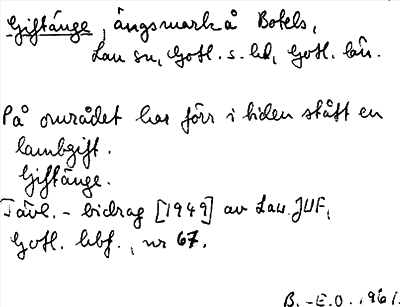 Giftänge, ängsmark å Botels,
Lau sn, Gotl. s. hd, Gotl. län.
På området har förr i tiden stått en
lambgift.
Giftänge.
Tävl.-bidrag [1949] av Lau JUF,
Gotl. hbf., nr 67.
B.-E.O. 1961.